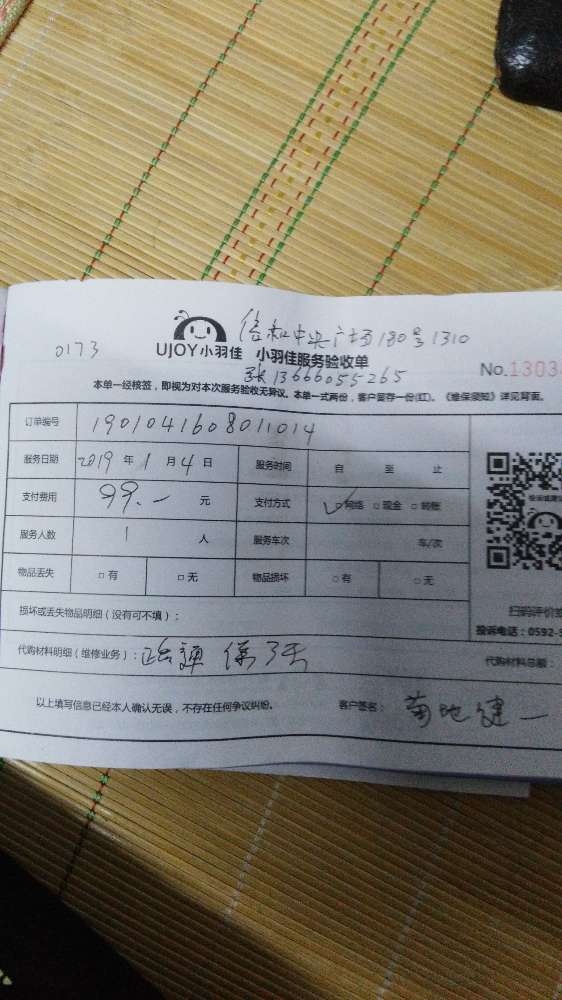 信和中央广场180号1310
0173
UJOY小羽佳 小羽佳服务验收单
张13666055265
No.1303
本单一经核签，即视为对本次服务验收无异议。本单一式两份，客户留存一份(红)。《维保须知》详见背面。
订单编号 1901041608011014
服务日期 2019 年 1 月 4 日 服务时间 自 至 止
支付费用 99.- 元 支付方式 ✓□网络 □现金 □转账
服务人数 1 人 服务车次 车/次
物品丢失 □有 □无 物品损坏 □有 □无
扫码评价
损坏或丢失物品明细（没有可不填）：
投诉电话：0592-5
代购材料明细（维修业务）： 保3天
代购材料总额：
以上填写信息已经本人确认无误，不存在任何争议纠纷。 客户签名： 菊地健一